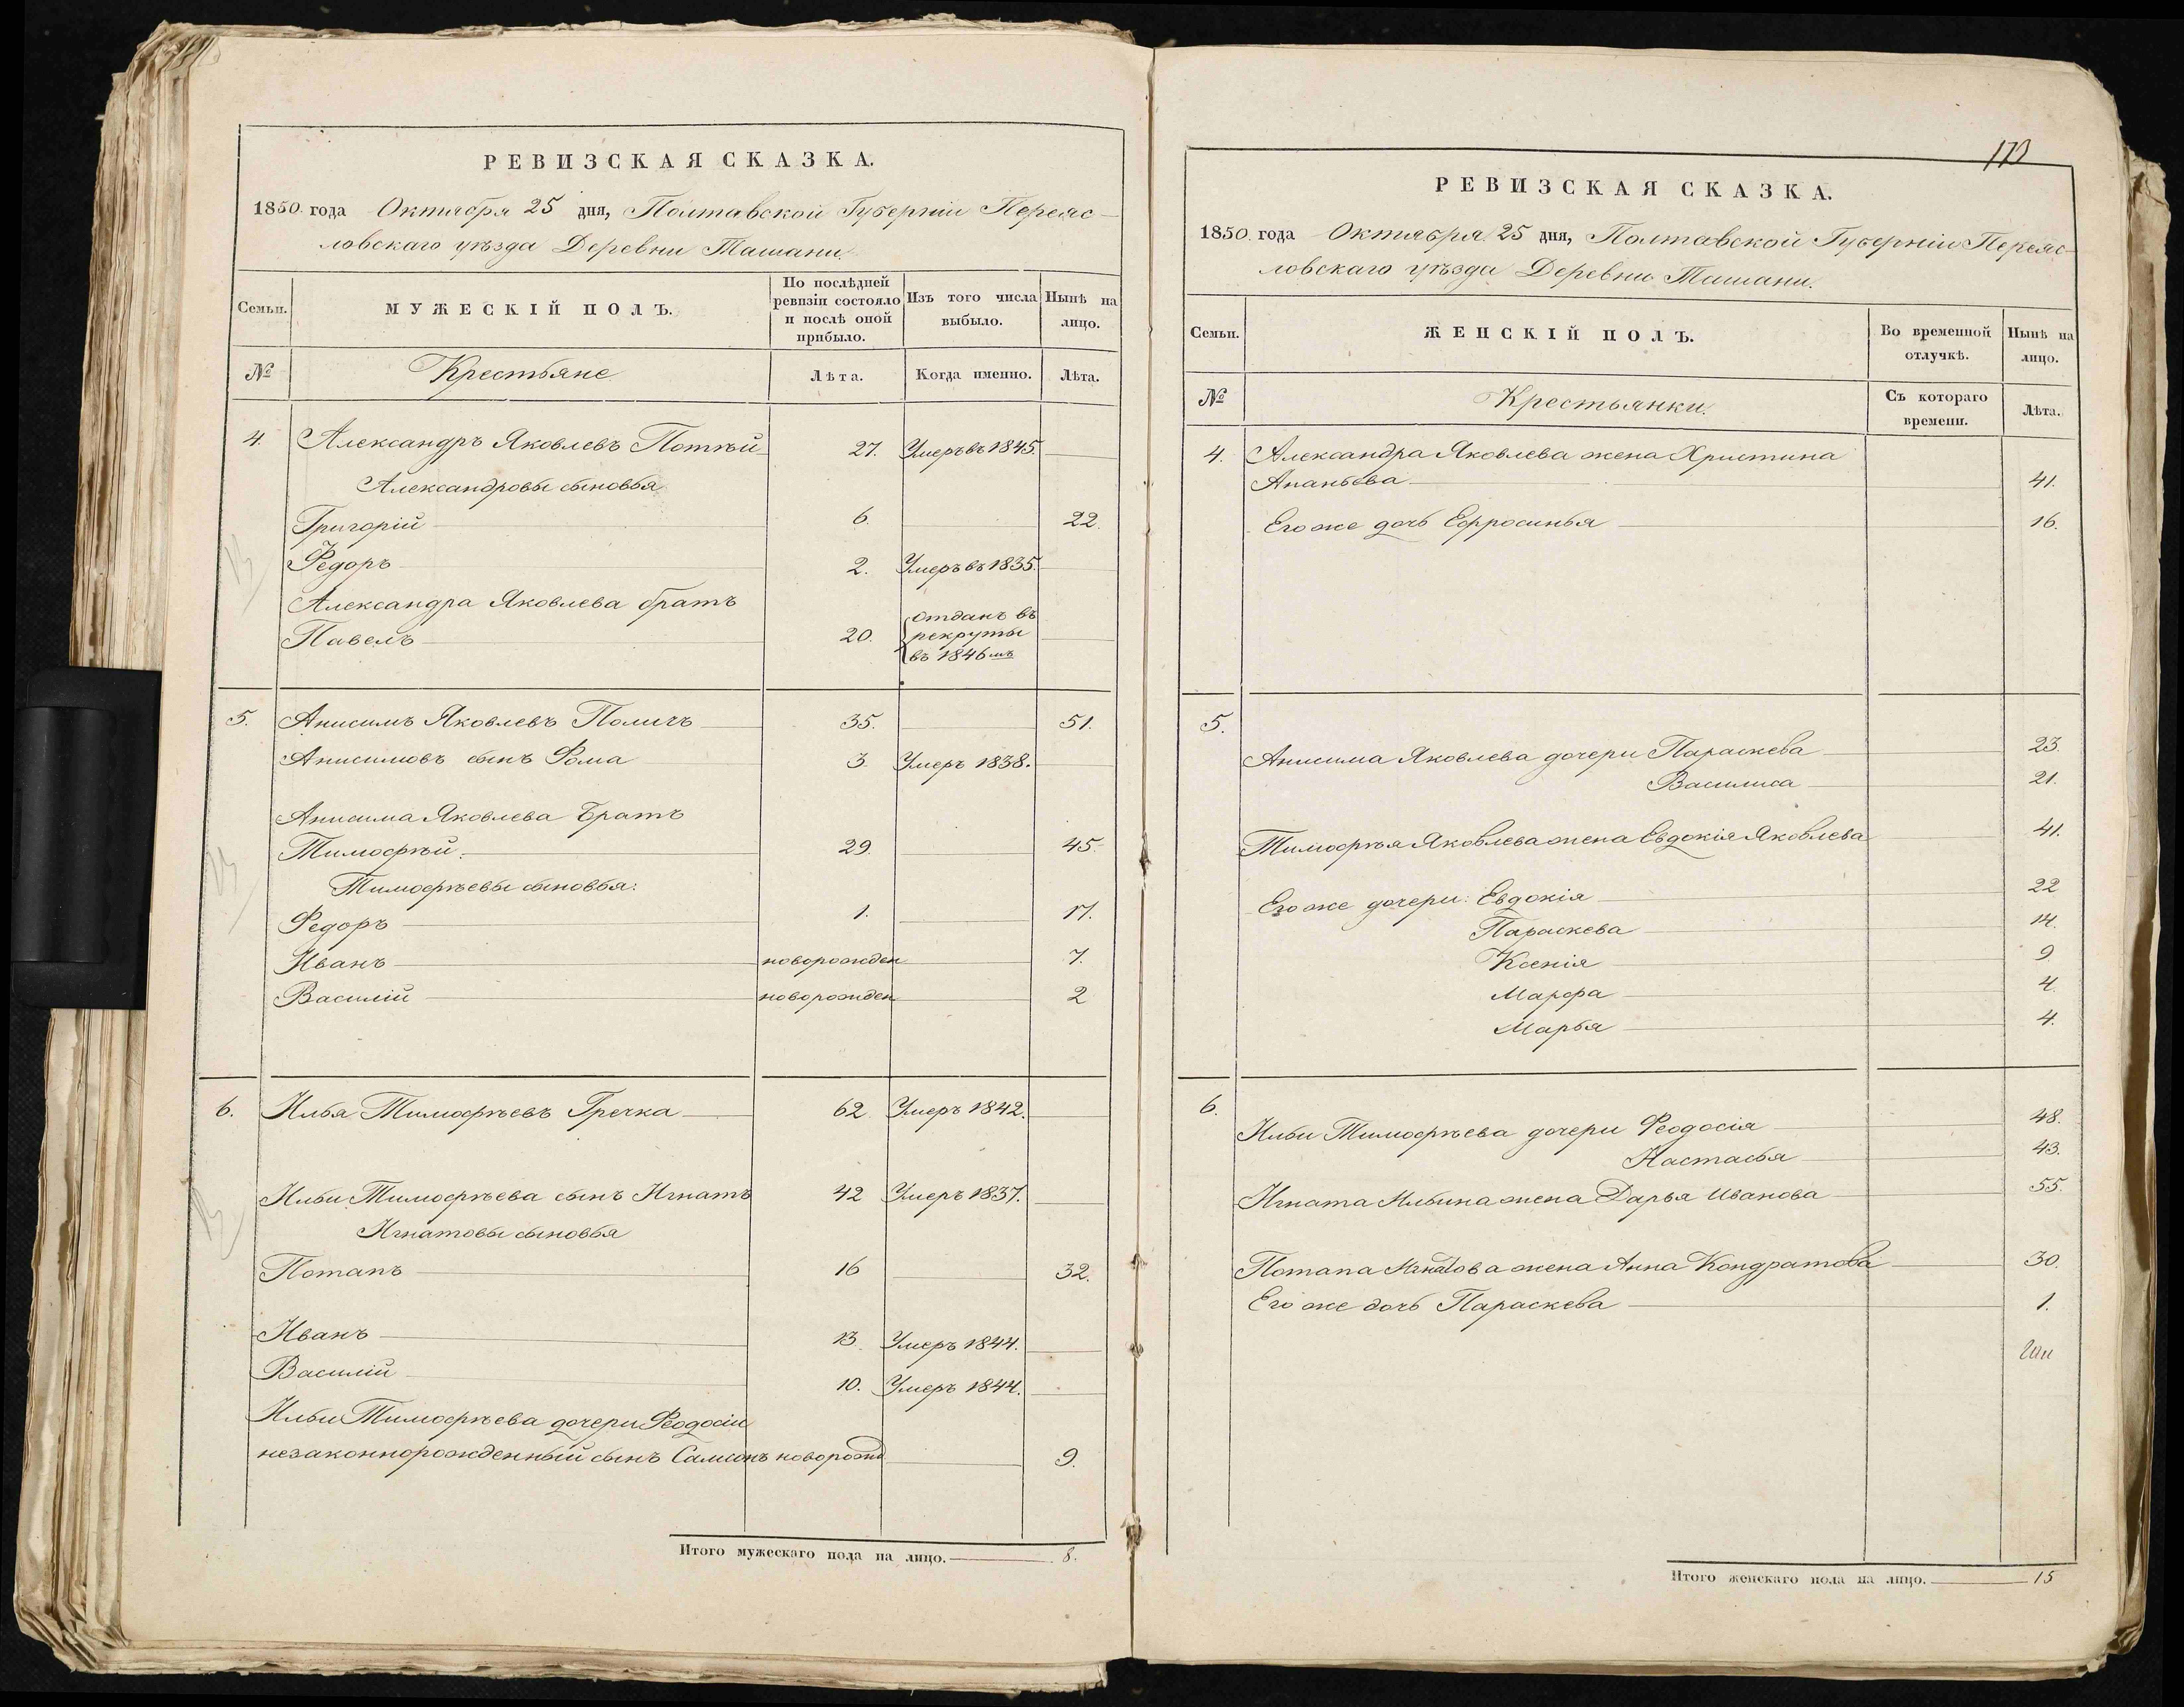 РЕВИЗСКАЯ СКАЗКА.
1850. года Октября 25 дня, Полтавской Губерніи Переяс-
ловскаго уѣзда Деревни Ташани.
Семьи.
МУЖЕСКІЙ ПОЛЪ.
По послѣдней ревизіи состояло и послѣ оной прибыло.
Изъ того числа выбыло.
Нынѣ на лицо.
№
Крестьяне
Лѣта.
Когда именно.
Лѣта.
4. Александръ Яковлевъ Потѣй 27. Умеръ въ 1845.
Александровы сыновья
Григорій 6. 22.
Ѳедоръ 2. Умеръ въ 1835.
Александра Яковлева братъ
Павелъ 20. отданъ въ рекруты въ 1846мъ
5. Анисимъ Яковлевъ 35. 51.
Анисимовъ сынъ Ѳома 3 Умеръ 1838.
Анисима Яковлева Братъ
Тимофѣй. 29. 45.
Тимофѣевы сыновья:
Ѳедоръ 1. 17.
Иванъ новорожден 7.
Василій новорожден 2
6. Илья Тимофѣевъ Гречка 62 Умеръ 1842.
Ильи Тимофѣева сынъ Игнатъ 42 Умеръ 1837.
Игнатовы сыновья
Потапъ 16 32.
Иванъ 13. Умеръ 1844.
Василій 10. Умеръ 1844.
Ильи Тимофѣева дочери Ѳеодосіи
незаконнорожденный сынъ Самсонъ новорожд 9.
Итого мужескаго пола на лицо. 8.
РЕВИЗСКАЯ СКАЗКА.
1850. года Октября 25 дня, Полтавской Губерніи Переяс-
ловскаго уѣзда Деревни Ташани.
Семьи.
ЖЕНСКІЙ ПОЛЪ.
Во временной отлучкѣ.
Нынѣ на лицо.
№
Крестьянки.
Съ котораго времени.
Лѣта.
4. Александра Яковлева жена Христина
Ананьева 41.
Его же дочь Ефросинья 16.
5.
Анисима Яковлева дочери Параскева 23.
Василиса 21.
Тимофѣя Яковлева жена Евдокія Яковлева 41.
Его же дочери: Евдокія 22
Параскева 14.
Ксенія 9
Марфа 4.
Марья 4.
6.
Ильи Тимофѣева дочери Ѳеодосія 48.
Настасья 43.
Игната Ильина жена Дарья Иванова 55.
Потапа Игнатова жена Анна Кондратова 30.
Его же дочь Параскева 1.
Итого женскаго пола на лицо. 15